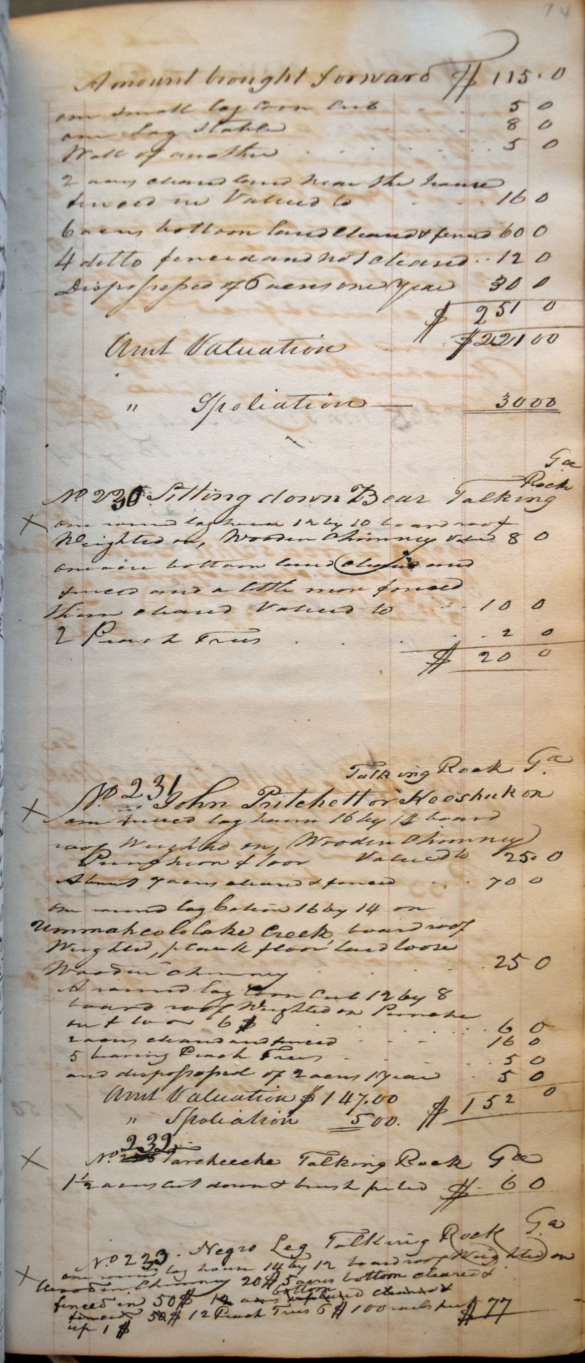 14
Amount brought forward $ 115.0
one small log Corn Crib . . . 5 0
one Log Stable . . . 8 0
Wall of another . . . 5 0
2 acres cleared land near the house
fenced in Valued to . . . 16 0
6 acres bottom land cleared & fenced 60 0
4 ditto fenced and not cleared . . 12 0
Dispossessed of 6 acres one year 30 0
$ 251 0
Amt Valuation $221 00
" Spoliation — 30 00
Ga
No 230 Sitting down Bear Talking Rock
X one round log house 12 by 10 board roof
Weighted on, Wooden Chimney Valued 8 0
one acre bottom land cleared and
fenced and a little more fenced
than cleared Valued to . . 10 0
2 Peach Trees . . . 2 0
$ 20 0
Talking Rock Ga
X No 231 John Pritchett or Kooskukon
one hewed log house 16 by 14 board
roof Weighted on, Wooden Chimney
Puncheon floor Valued to 25.0
About 7 acres cleared & fenced . . 70 0
one round log Cabin 16 by 14 on
Ummahcololake Creek board roof
Weighted, plank floor laid loose
Wooden Chimney . . . 25 0
A round log Corn Crib 12 by 8
board roof Weighted on Punche
on floor 6$ . . . 6 0
2 acres cleared and fenced . . . 16 0
5 bearing Peach Trees . . . 5 0
and dispossessed of 2 acres 1 year . . 5 0
Amt Valuation $147.00
" Spoliation 5 00. $ 152 0
X No 232 Tarcheeche Talking Rock Ga
1½ acres cut down & brush piled $ 6 0
No 223. Negro Leg Talking Rock Ga
X one round log house 14 by 12 board roof Weighted on
Wooden Chimney 20$ 5 acres bottom cleared &
fenced in 50$ acres bottom cleared &
fenced 50$ 12 Peach Trees 6$ 100 rails
up 1$ $ 77